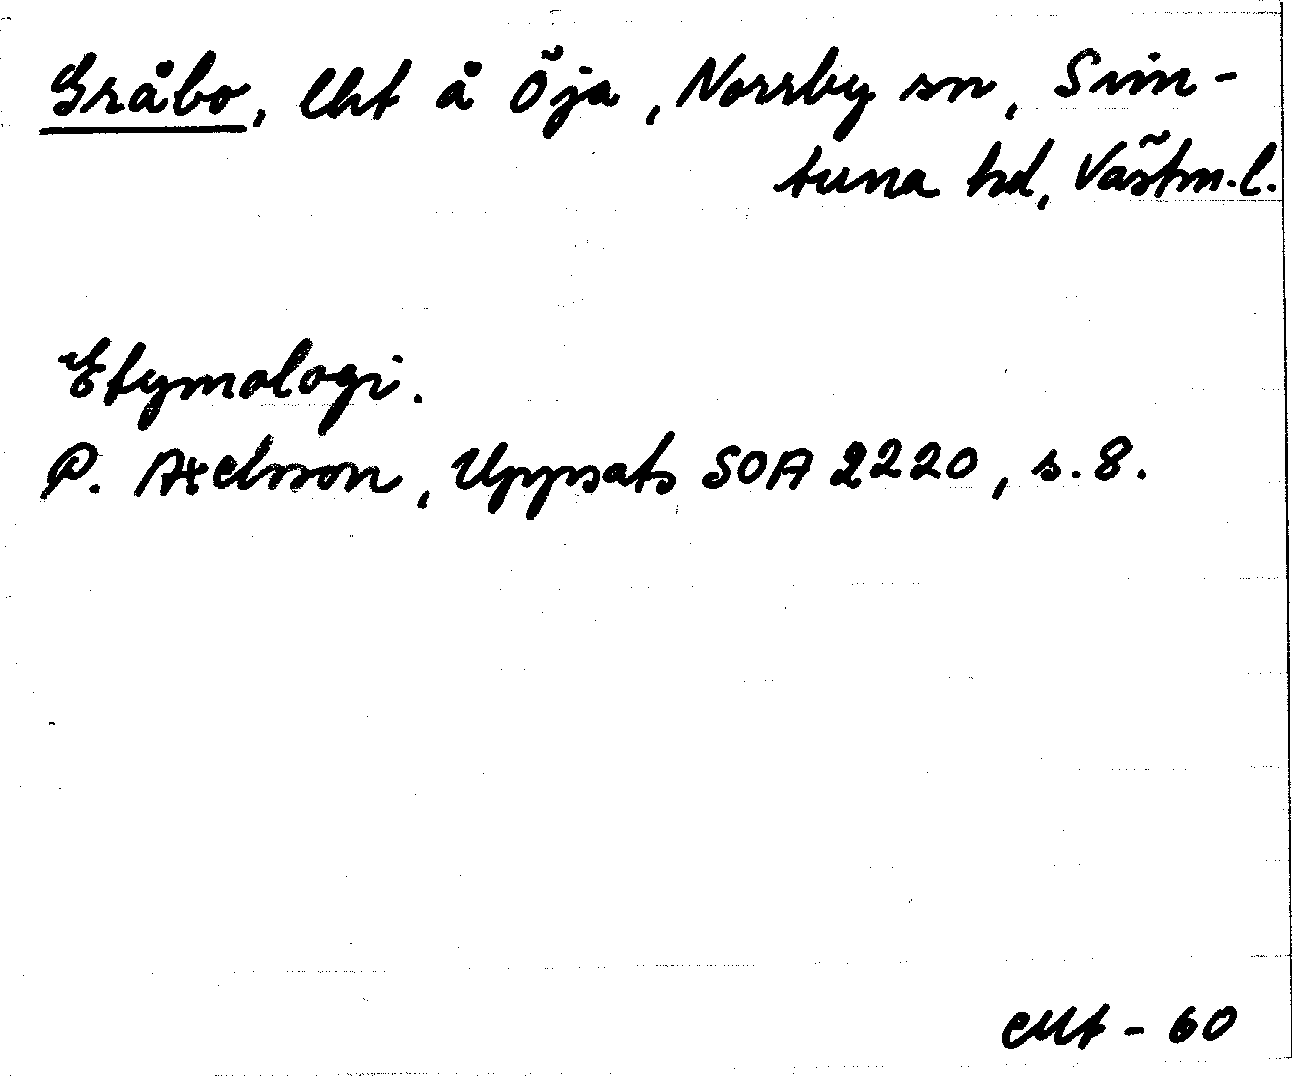 Gråbo, lht å Öja, Norrby sn, Sim-
tuna hd, Västm.l.
Etymologi.
P. Axelsson, Uppsats SOA 2220, s. 8.
- 60